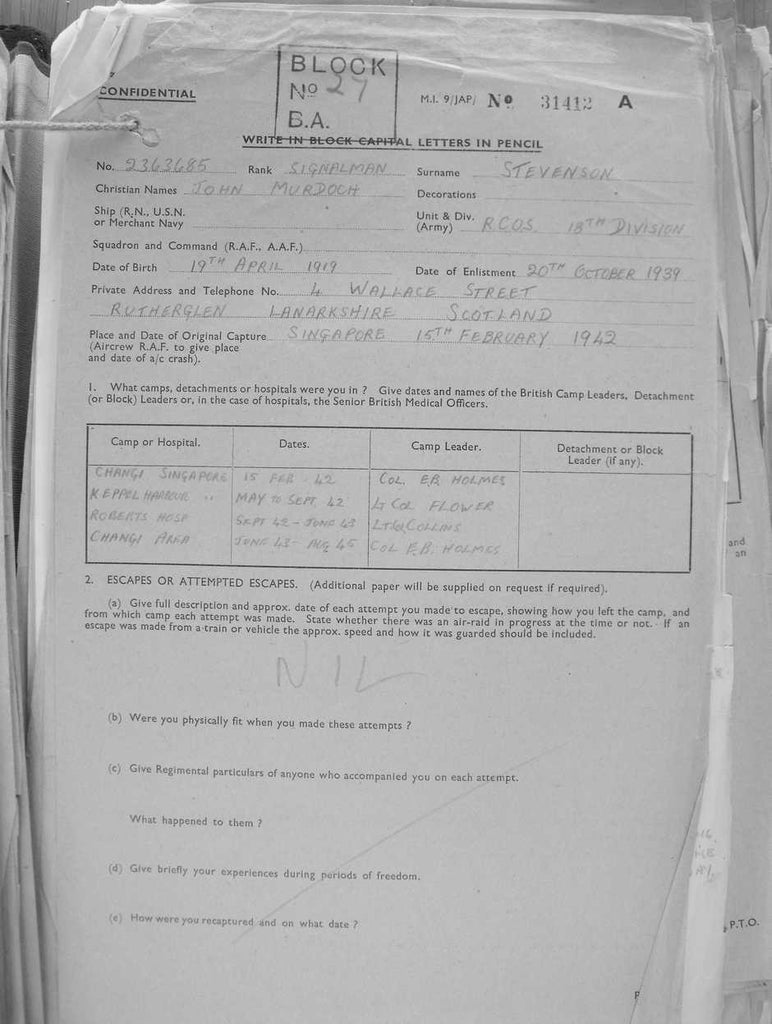 CONFIDENTIAL
BLOCK
No 27
B.A.
M.I. 9/JAP/ No 31412 A
WRITE IN BLOCK CAPITAL LETTERS IN PENCIL
No. 2363685 Rank SIGNALMAN Surname STEVENSON
Christian Names JOHN MURDOCH Decorations
Ship (R.N., U.S.N. or Merchant Navy
Unit & Div. (Army) R.C.O.S. 18TH DIVISION
Squadron and Command (R.A.F., A.A.F.)
Date of Birth 19TH APRIL 1919 Date of Enlistment 20TH OCTOBER 1939
Private Address and Telephone No. 4 WALLACE STREET
RUTHERGLEN LANARKSHIRE SCOTLAND
Place and Date of Original Capture SINGAPORE 15TH FEBRUARY 1942
(Aircrew R.A.F. to give place
and date of a/c crash).
1. What camps, detachments or hospitals were you in ? Give dates and names of the British Camp Leaders, Detachment
(or Block) Leaders or, in the case of hospitals, the Senior British Medical Officers.
Camp or Hospital. Dates. Camp Leader. Detachment or Block Leader (if any).
CHANGI SINGAPORE 15 FEB. 42 COL. E.B. HOLMES
KEPPEL HARBOUR " MAY TO SEPT. 42 LT COL FLOWER
ROBERTS HOSP SEPT 42 - JUNE 43 LT COL COLLINS
CHANGI AREA JUNE 43 - AUG 45 COL E.B. HOLMES
2. ESCAPES OR ATTEMPTED ESCAPES. (Additional paper will be supplied on request if required).
(a) Give full description and approx. date of each attempt you made to escape, showing how you left the camp, and
from which camp each attempt was made. State whether there was an air-raid in progress at the time or not. If an
escape was made from a train or vehicle the approx. speed and how it was guarded should be included.
NIL
(b) Were you physically fit when you made these attempts ?
(c) Give Regimental particulars of anyone who accompanied you on each attempt.
What happened to them ?
(d) Give briefly your experiences during periods of freedom.
(e) How were you recaptured and on what date ?
and
an
P.T.O.
P